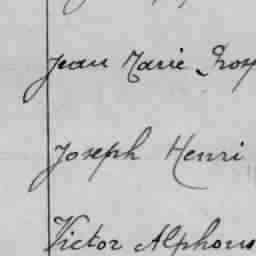 Jean Marie
Joseph Henri
Victor Alphons